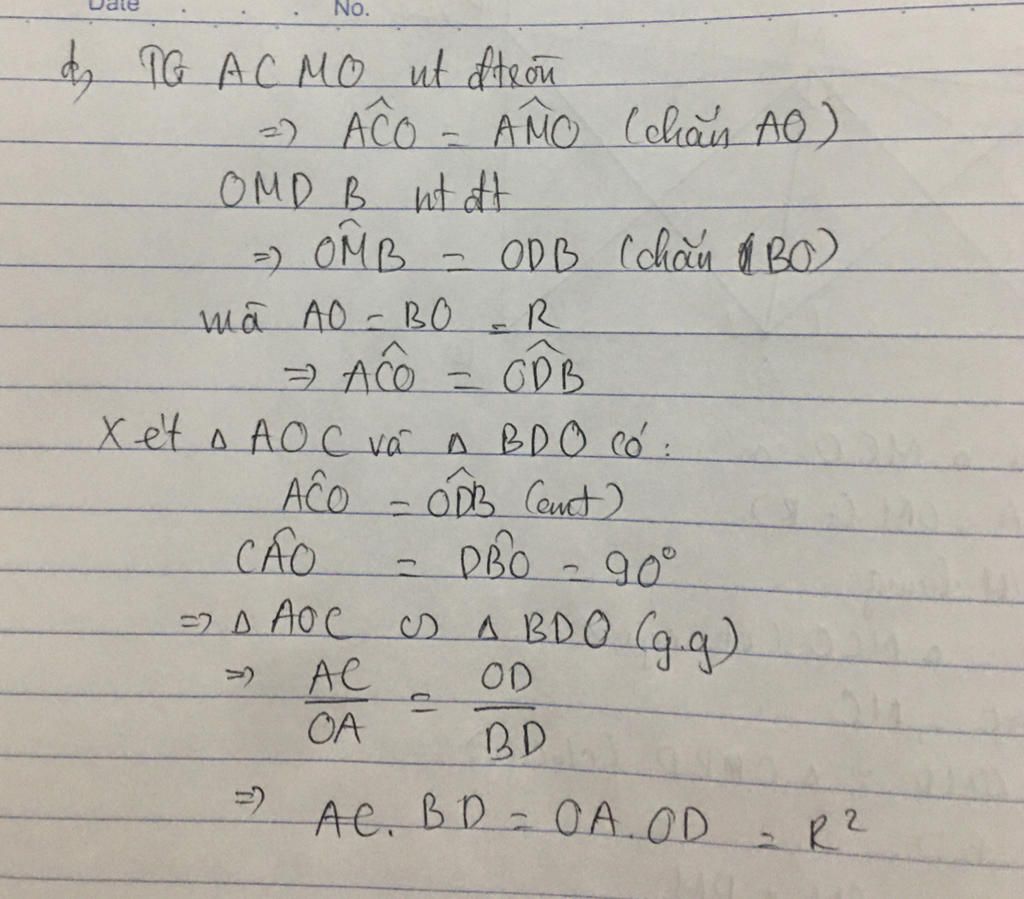 Date . . . . No.
d, TG ACMO nt đtròn
=> AĈO = AM̂O (chắn AO)
OMDB nt đt
=> OM̂B = ODB (chắn BO)
mà AO = BO = R
=> AĈO = OD̂B
Xét Δ AOC và Δ BDO có:
AĈO = OD̂B (cmt)
CÂO = DB̂O = 90°
=> Δ AOC ∽ Δ BDO (g.g)
=> AC/OA = OD/BD
=> AC.BD = OA.OD = R²